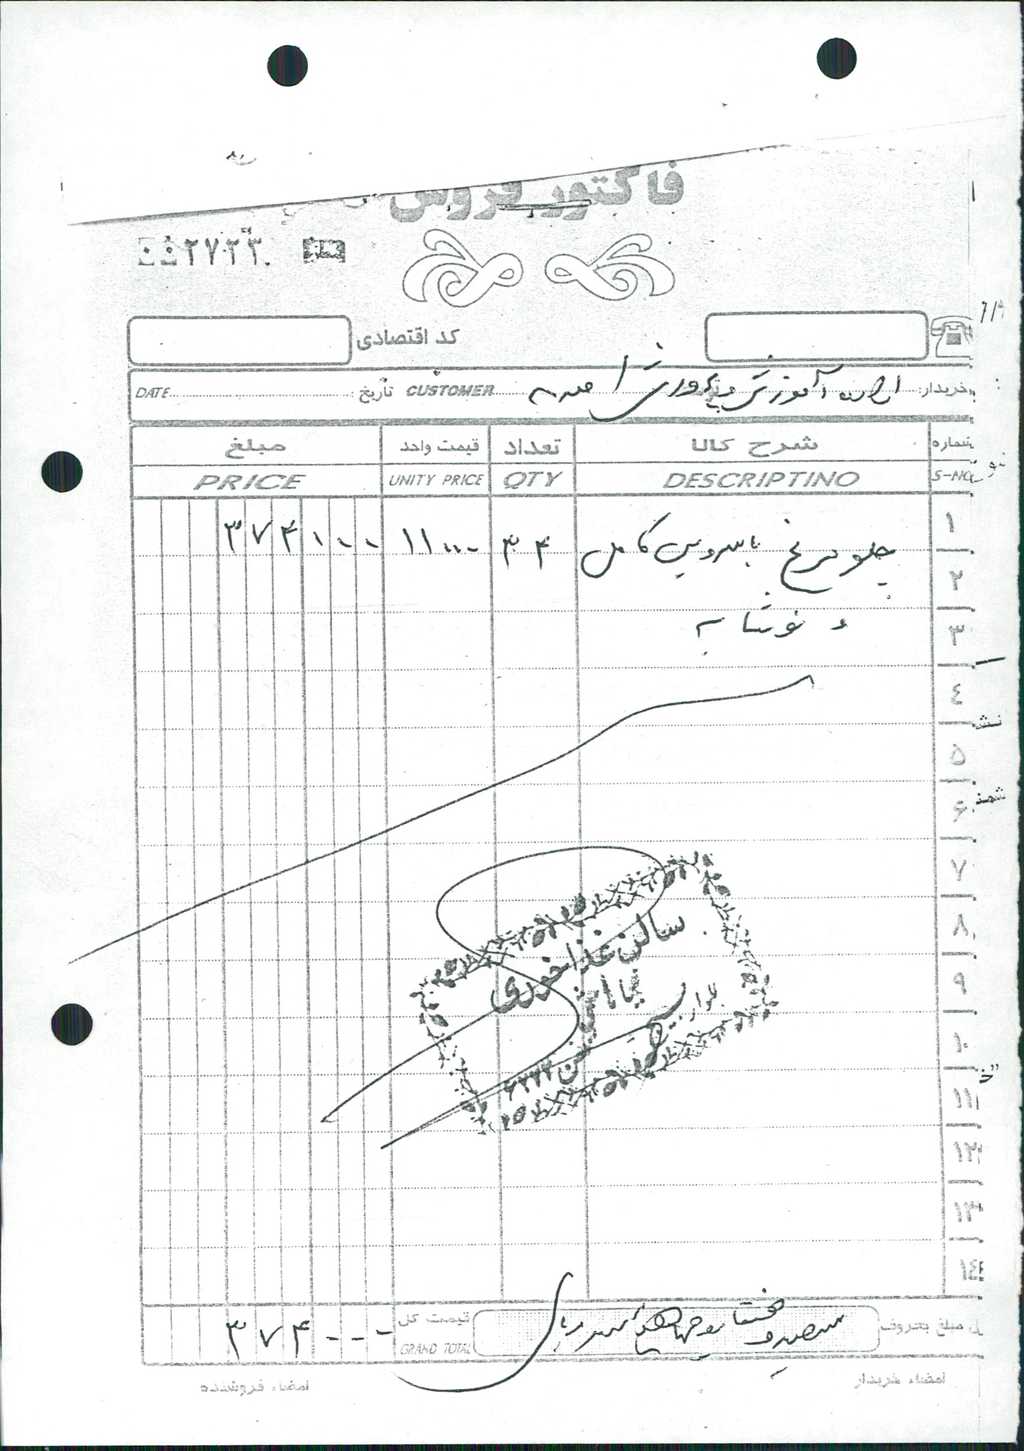 فاکتور فروش
شماره
کد اقتصادی
خریدار: اداره آموزش و پرورش CUSTOMER تاریخ: DATE
شماره شرح کالا تعداد قیمت واحد مبلغ
S-NO DESCRIPTINO QTY UNITY PRICE PRICE
۱ چلو مرغ با سرویس کامل ۳۴ ۱۱۰۰۰ ۳۷۴۰۰۰
۲
۳ و نوشابه
٤
۵
۶
۷
۸
۹
۱۰
۱۱
۱۲
۱۳
۱٤
سالن غذاخوری
بلوار
تلفن
مبلغ بحروف سیصد و هفتاد و چهار هزار ریال قیمت کل ۳۷۴۰۰۰
GRAND TOTAL
امضاء خریدار امضاء فروشنده